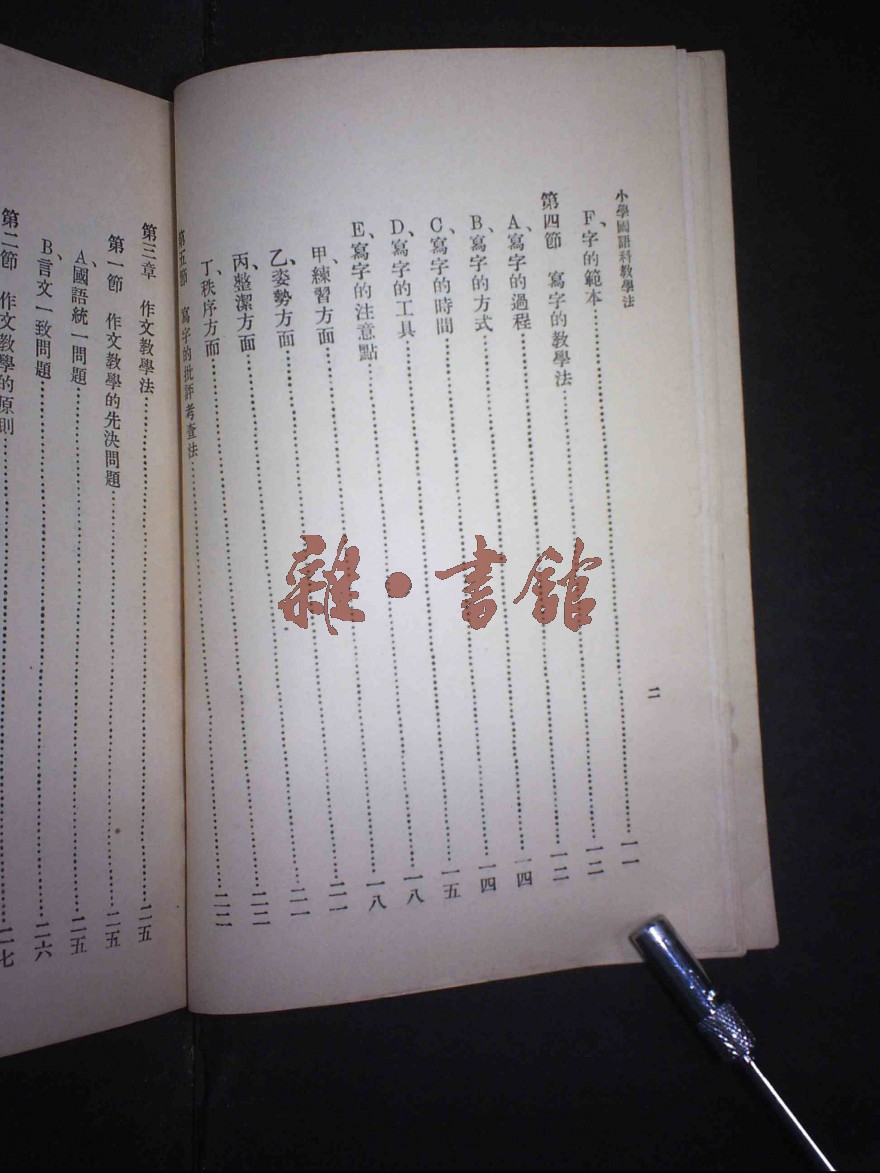 小學國語科教學法
二
F、字的範本…………一一
第四節　寫字的教學法…………一二
A、寫字的過程…………一二
B、寫字的方式…………一四
C、寫字的時間…………一四
D、寫字的工具…………一五
E、寫字的注意點…………一八
甲、練習方面…………一八
乙、姿勢方面…………二一
丙、整潔方面…………二一
丁、秩序方面…………二二
第五節　寫字的批評考查法…………二二
第三章　作文教學法…………二五
第一節　作文教學的先決問題…………二五
A、國語統一問題…………二五
B、言文一致問題…………二六
第二節　作文教學的原則…………二七
雜·書館